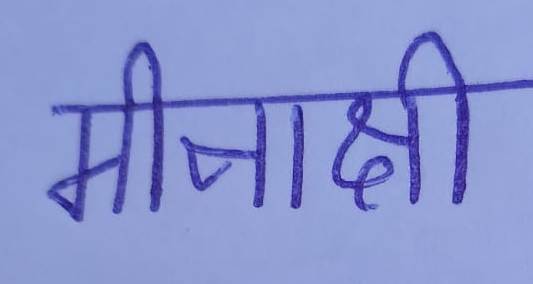 मीनाक्षी